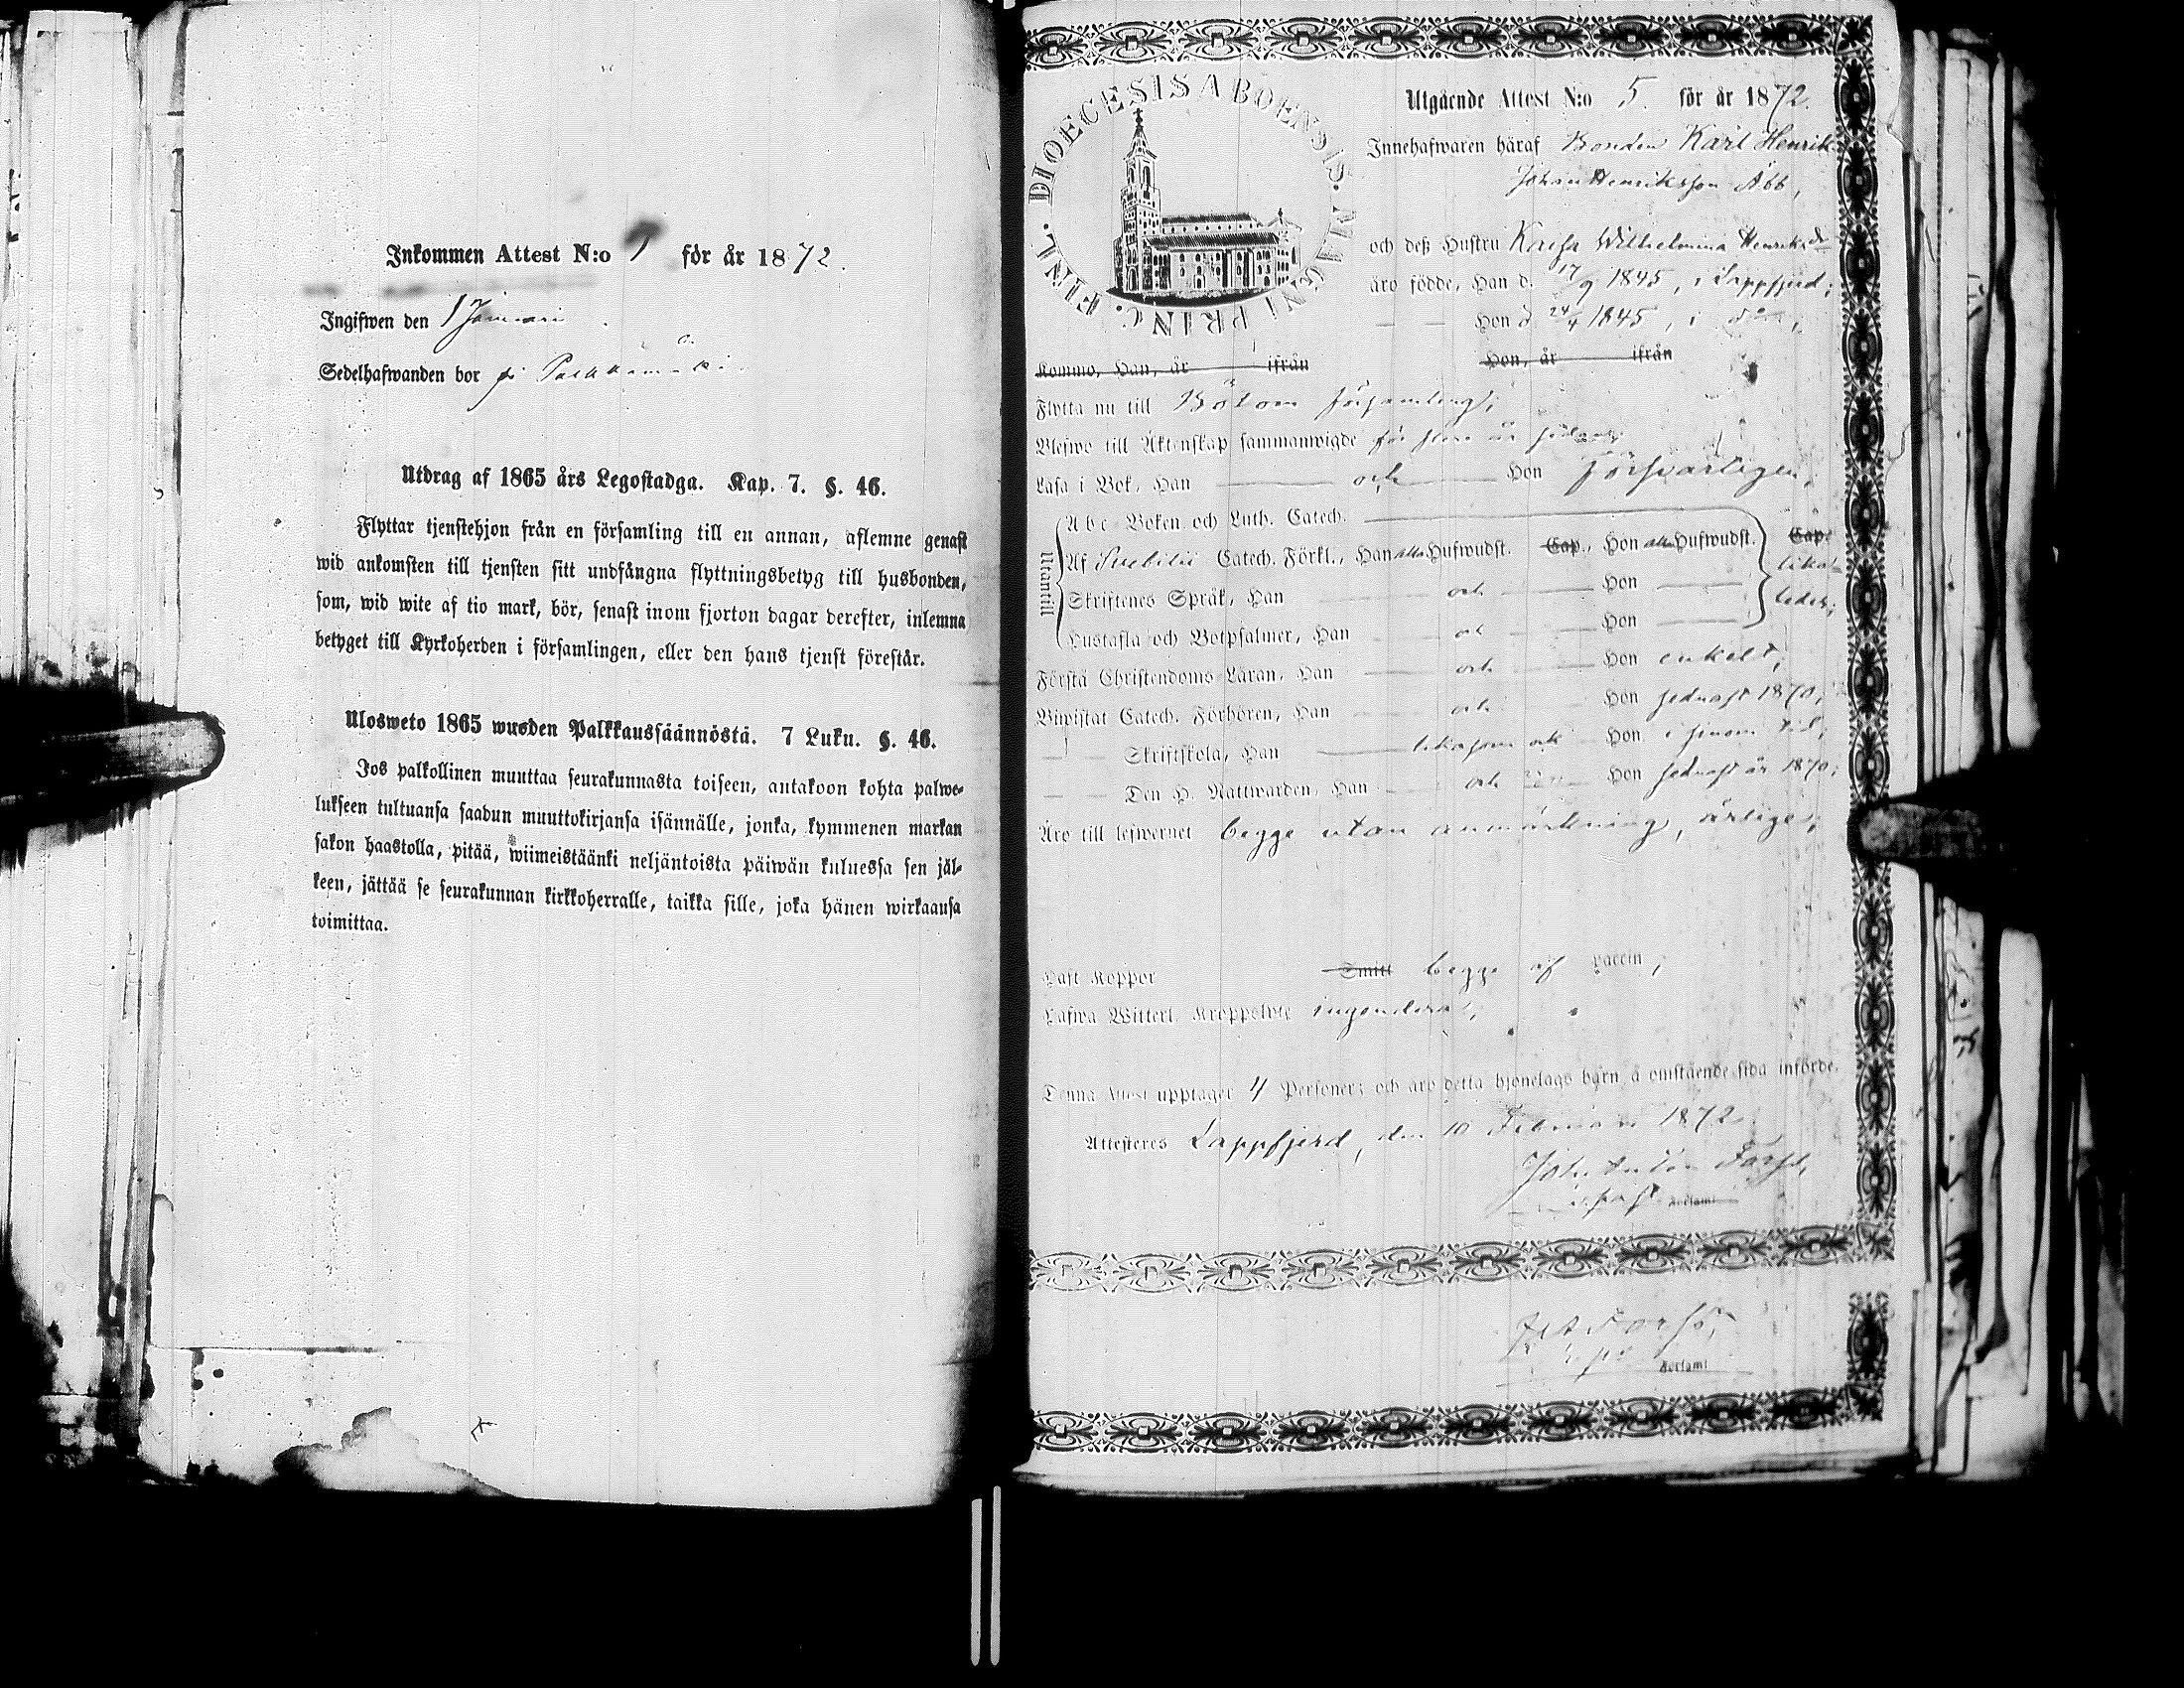 Inkommen Attest N:o 1 för år 1872.
Ingifwen den 1 Januari
Sedelhafwanden bor på
Utdrag af 1865 års Legostadga. Kap. 7. §. 46.
Flyttar tjenstehjon från en församling till en annan, aflemne genast
wid ankomsten till tjensten sitt undfångna flyttningsbetyg till husbonden,
som, wid wite af tio mark, bör, senast inom fjorton dagar derefter, inlemna
betyget till Kyrkoherden i församlingen, eller den hans tjenst förestår.
Ulosweto 1865 wuoden Palkkaussäännöstä. 7 Luku. §. 46.
Jos palkollinen muuttaa seurakunnasta toiseen, antakoon kohta palwe-
lukseen tultuansa saadun muuttokirjansa isännälle, jonka, kymmenen markan
sakon haastolla, pitää, wiimeistäänki neljäntoista päiwän kuluessa sen jäl-
keen, jättää se seurakunnan kirkkoherralle, taikka sille, joka hänen wirkaansa
toimittaa.
DIOECESIS ABOENSIS. MAGNI PRINC. FINL.
Utgående Attest N:o 5. för år 1872.
Innehafwaren häraf Bonden Karl Henrik
Johan Henriksson Abb,
och deß Hustru Kajsa Wilhelmina Henriksdr
äro födde, Han d. 17/9 1845, i Lappfjerd;
Hon d 24/4 1845, i do,
Kommo, Han, år ifrån Hon, år ifrån
Flytta nu till Bötom församling;
Blefwo till Äktenskap sammanwigde för flere år sedan;
Läsa i Bok, Han och Hon försvarligen;
Utantill
Abc-Boken och Luth. Catech.
Af Svebilii Catech. Förkl., Han alla Hufwudst. Cap., Hon alla Hufwudst. Cap.
Skriftenes Språk, Han och Hon lika-
ledes;
Hustafla och Botpsalmer, Han och Hon
Förstå Christendoms-Läran, Han och Hon enkelt;
Biwistat Catech. Förhören, Han och Hon sednast 1870;
Skriftskola, Han likasom och Hon i sinom tid;
Den H. Nattwarden, Han och Hon sednast år 1870;
Äro till lefwernet begge utan anmärkning, ärlige;
Haft Koppor Smitt begge af vaccin;
Hafwa Witterl. Kroppslyte ingendera;
Denna Attest upptager 4 Personer; och äro detta hjonelags barn å omstående sida införde.
Attesteras Lappfjerd, den 10 Februari 1872.
Joh. Anton Forss,
Förlamt